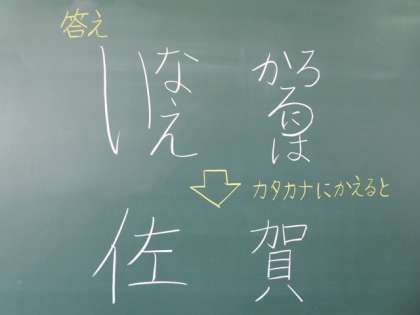 答え
いなえ
かろろには
カタカナにかえると
佐賀